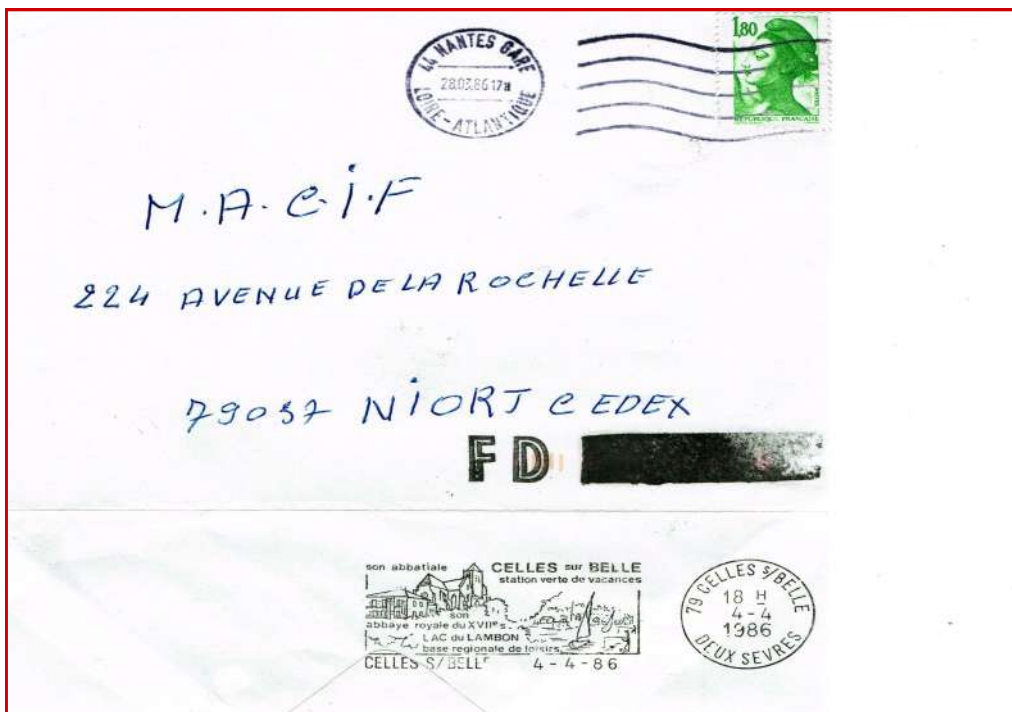 44 NANTES GARE
28.03.86 17H
LOIRE-ATLANTIQUE
1,80
RÉPUBLIQUE FRANÇAISE
M.A.C.I.F
224 AVENUE DE LA ROCHELLE
79037 NIORT CEDEX
FD
son abbatiale CELLES sur BELLE
station verte de vacances
son
abbaye royale du XVIIes.
LAC du LAMBON
base regionale de loisirs
CELLES S/BELLE 4-4-86
79 CELLES S/BELLE
18 H
4-4
1986
DEUX SEVRES